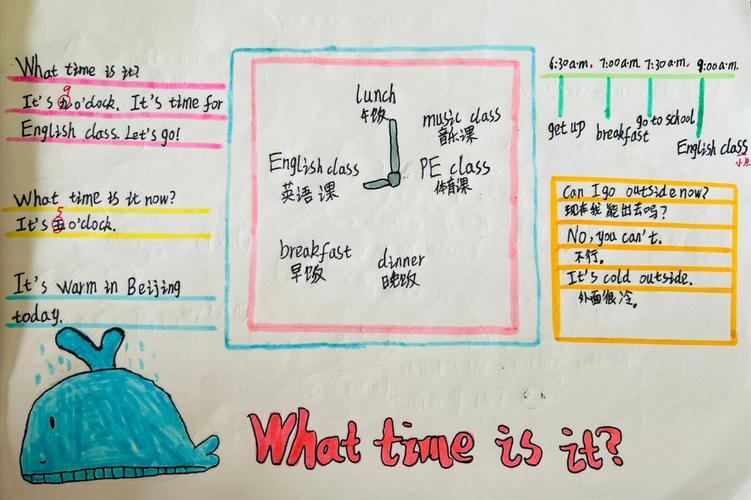 What time is it?
9
It's 九 o'clock. It's time for
English class. Let's go!
What time is it now?
5
It's 五 o'clock.
It's warm in Beijing
today.
lunch
午饭
music class
音乐课
English class
英语课
PE class
体育课
breakfast
早饭
dinner
晚饭
6:30a.m. 7:00a.m. 7:30a.m. 9:00a.m.
get up
breakfast
go to school
English class
Can I go outside now?
现在我能出去吗?
No, you can't.
不行。
It's cold outside.
外面很冷。
What time is it?